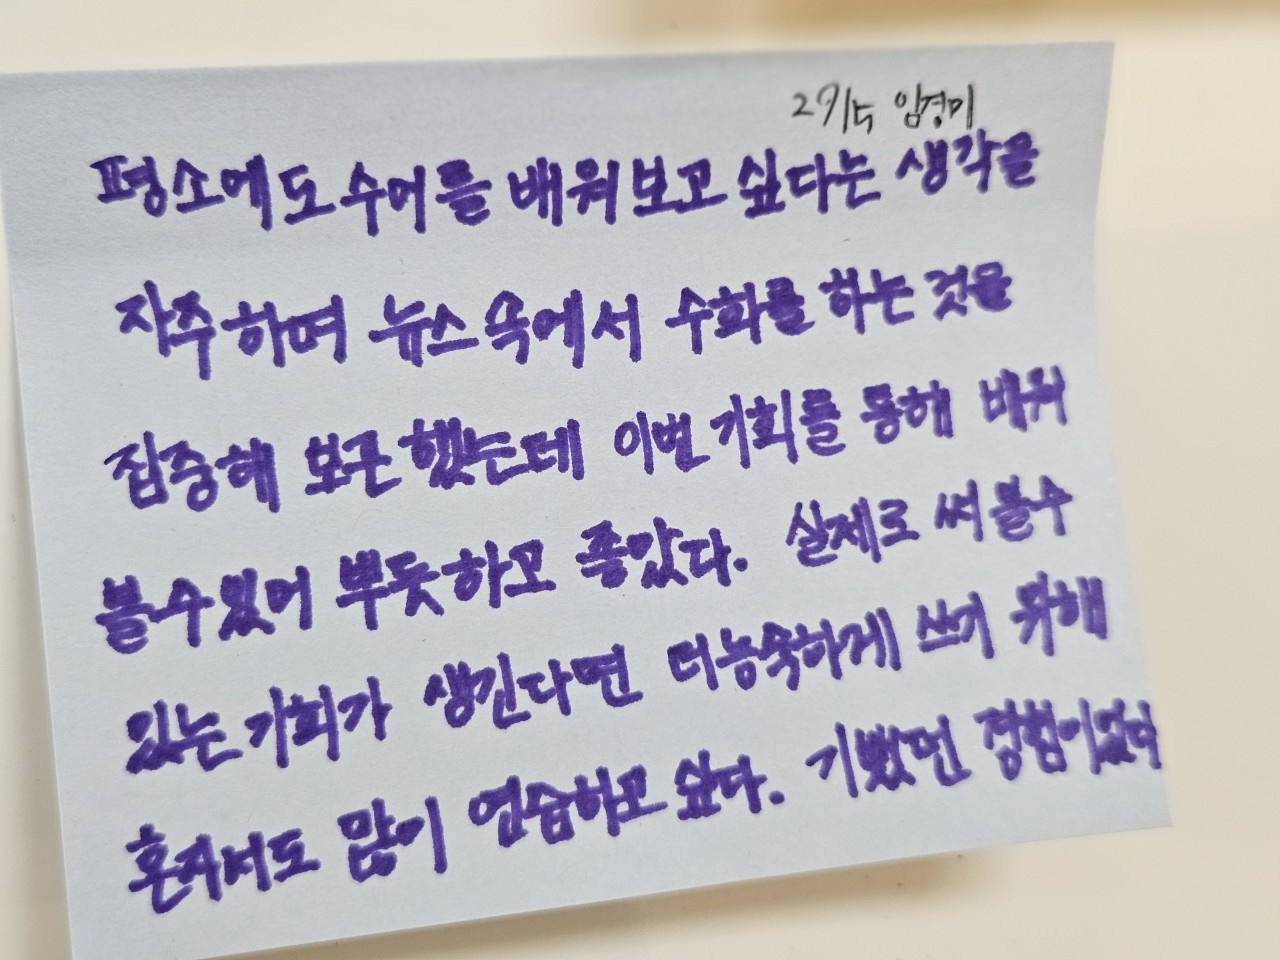 임경미
평소에도 수어를 배워보고 싶다는 생각을
자주하며 뉴스 속에서 수화를 하는 것을
집중해 보곤 했는데 이번 기회를 통해 배워
볼 수 있어 뿌듯하고 좋았다. 실제로 써 볼 수
있는 기회가 생긴다면 더 능숙하게 쓰기 위해
혼자서도 많이 연습하고 싶다. 기뻤던 경험이었다